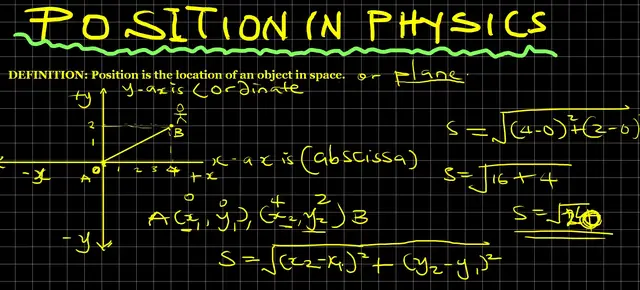 POSITION IN PHYSICS
DEFINITION: Position is the location of an object in space. or plane.
+y y-axis Cordinate
B
2
1
-x A 0 1 2 3 4 +x x-axis (abscissa)
-y
0 0 4 2
A(x₁, y₁), (x₂, y₂) B
S = √(x₂-x₁)² + (y₂-y₁)²
S = √(4-0)² + (2-0)
S = √16 + 4
S = √20